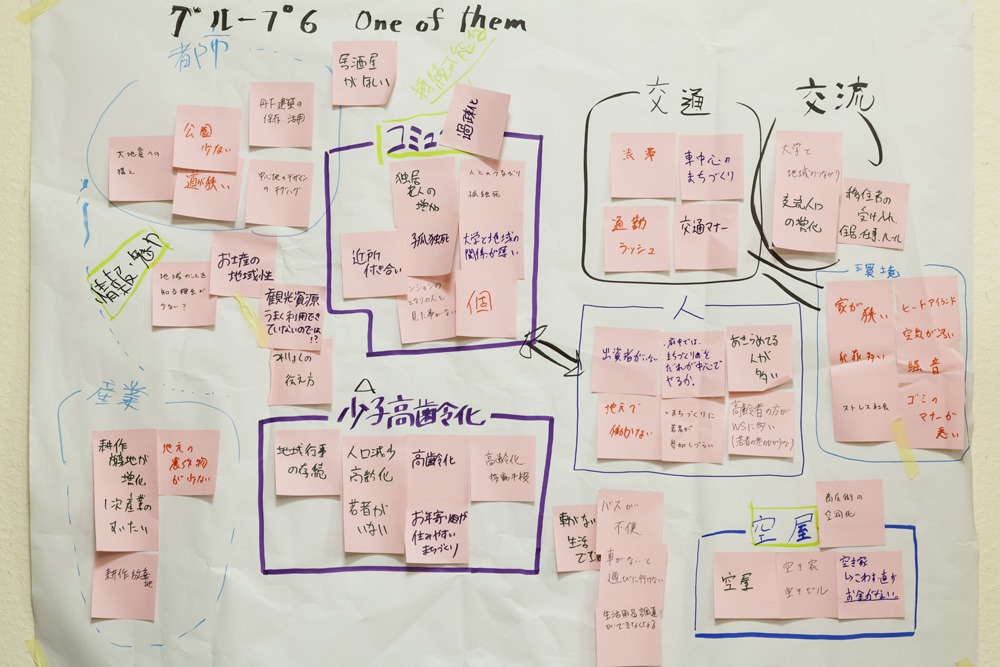 グループ6 One of them
都市
居酒屋
がほしい
丹下建築の
保存・活用
公園
少ない
大地震への
備え
道が狭い
中心地のデザイン
のチグハグ
情報・魅力
お土産の
地域性
地域のことを
知る機会が
少ない?
観光資源
うまく利用でき
ていないのでは!?
伝え方
過疎化
コミュ
独居
老人の
増加
人とのつながり
孤独死
孤独死
大学と地域の
関係が薄い
近所
付き合い
ンションの
となりの人と
見た事がない
個
交通
渋滞
車中心の
まちづくり
通勤
ラッシュ
交通マナー
交流
大学と
地域のつながり
交流人口
の増化
移住者の
受け入れ
住居、仕事、ルール
環境
家が
狭い
ヒートアイランド
空気が悪い
犯罪多い
騒音
ストレス社会
ゴミの
マナーが
悪い
人
出資者がいない
府中では、
まちづくりを
だれが中心で
やるか。
あきらめてる
人が
多い
地元で
働かない
・まちづくりに
若者が
参加しづらい
高齢者の方が
WSに多い
(若者の参加が少ない)
産業
耕作
放棄地が
増化
1次産業の
すいたい
地元の
農作物
が少ない
耕作放棄地
少子高齢化
地域行事
の存続
人口減少
高齢化
若者が
いない
高齢化
お年寄り目が
住みやすい
まちづくり
高齢化
車がない
生活
バスが
不便
車がないと
遊びに行けない
生活用品調達
ができなくなる
商店街の
空洞化
空屋
空屋
空き家
空きビル
空き家
お金がない。